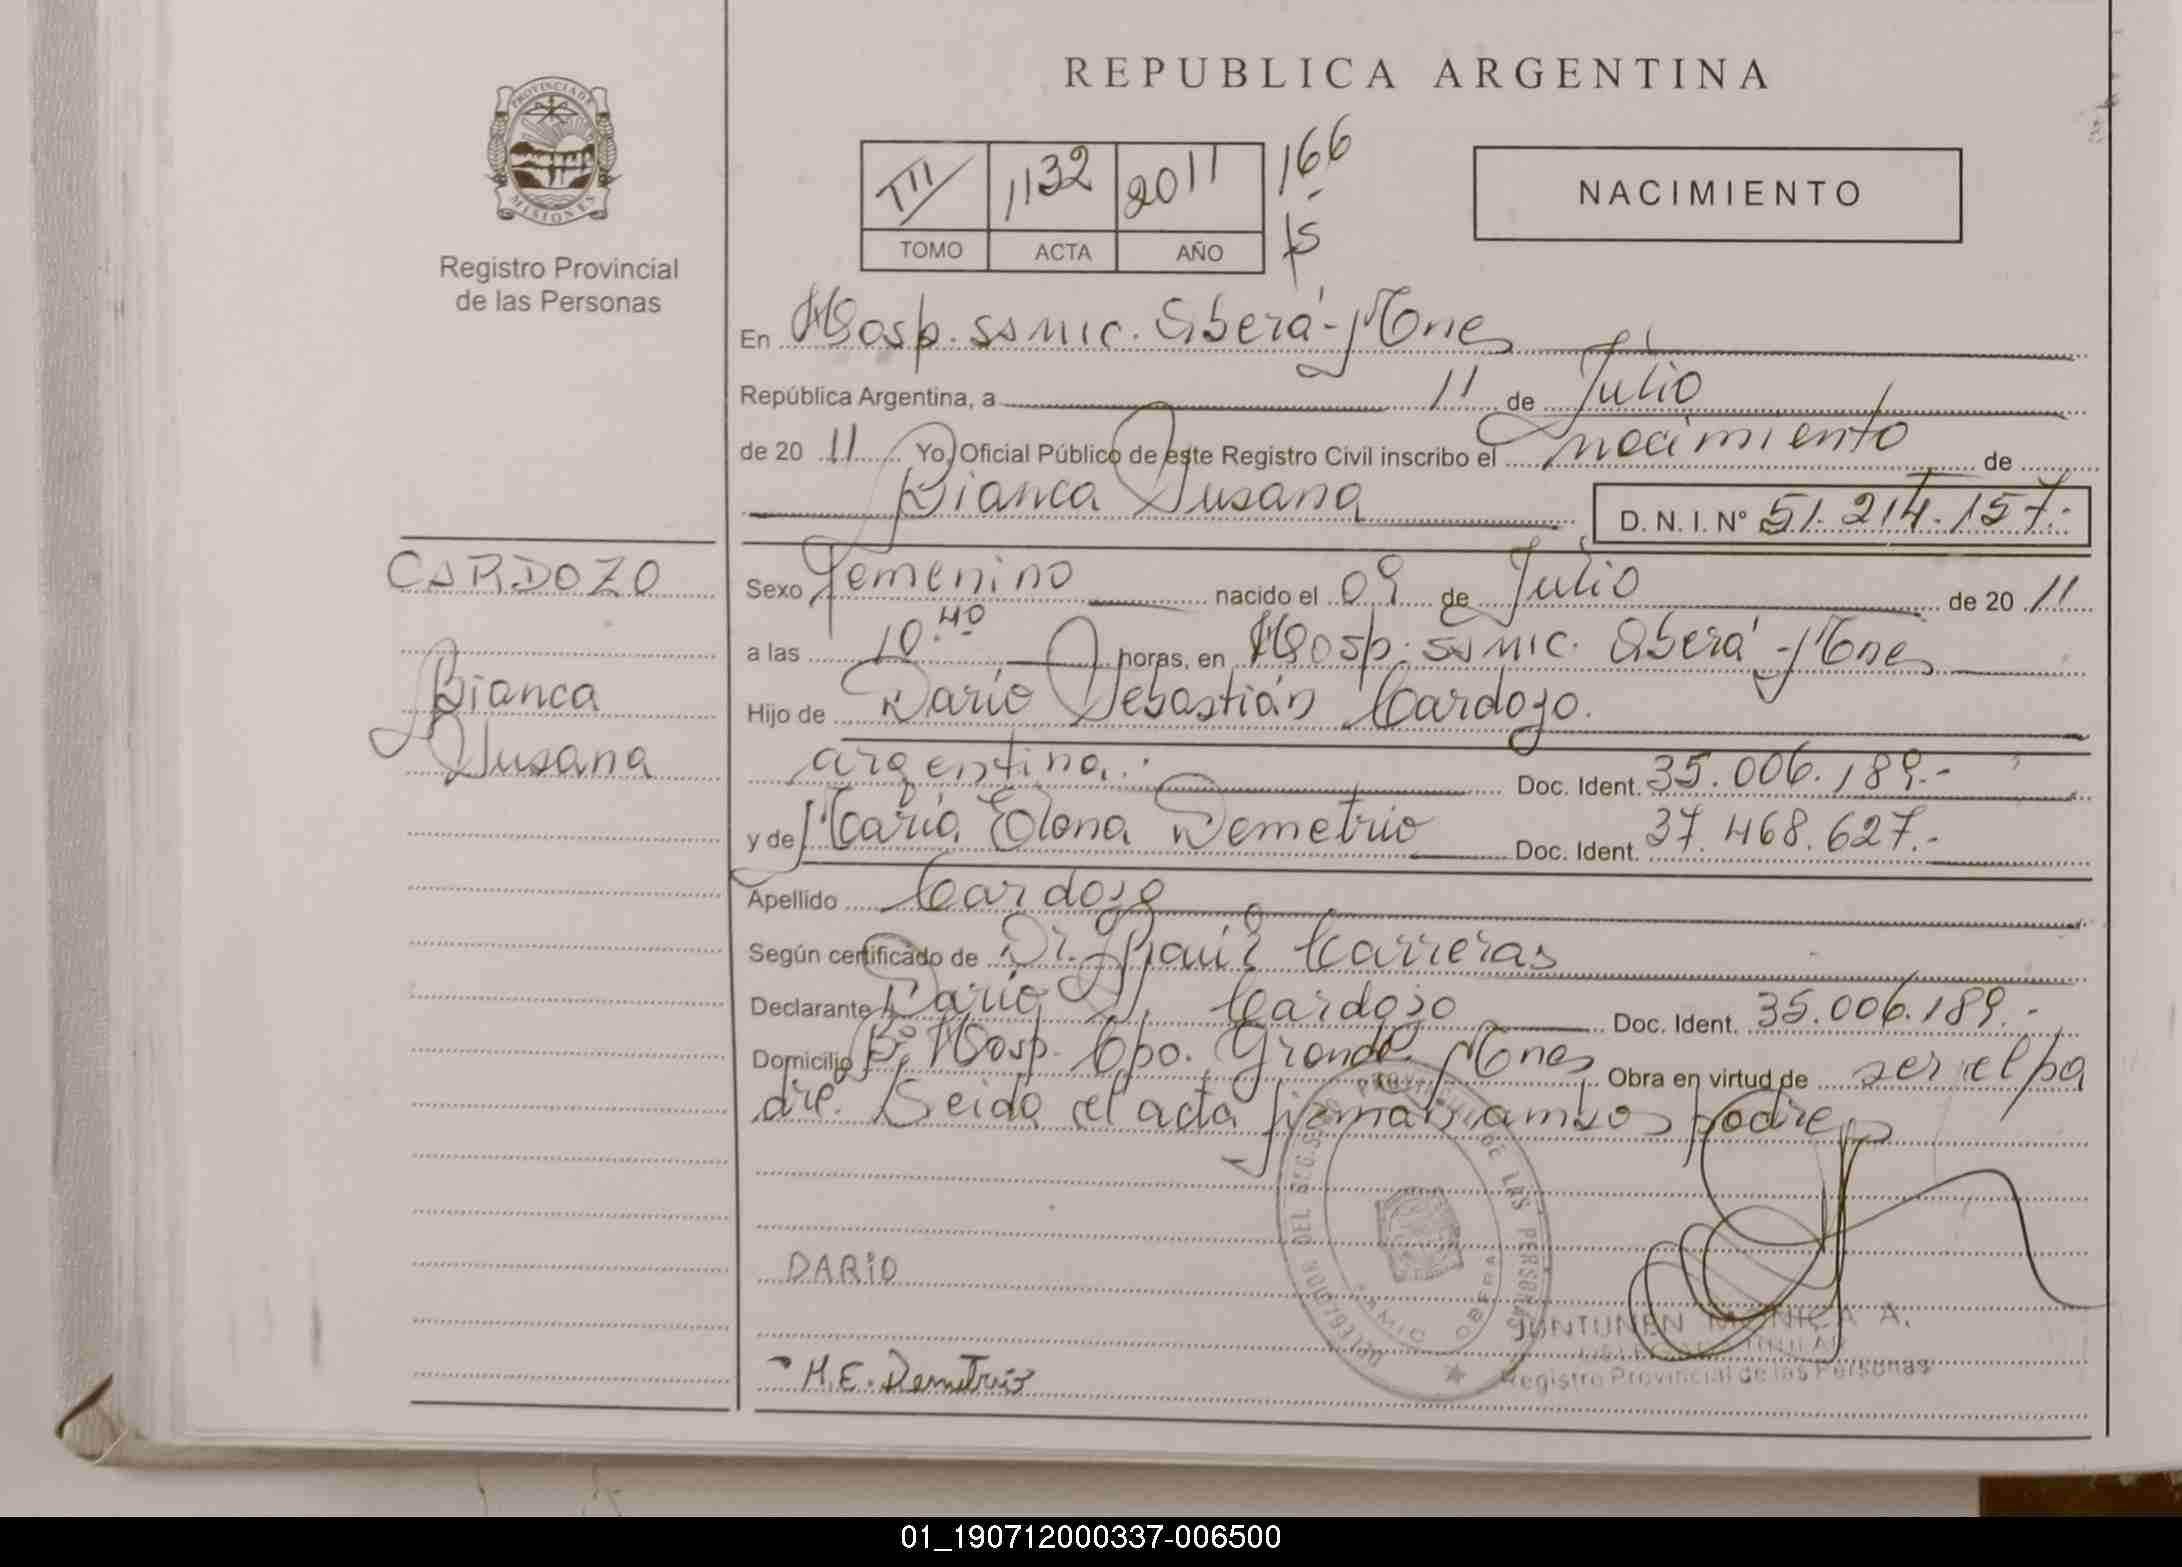 PROVINCIA DE
MISIONES
Registro Provincial
de las Personas
REPUBLICA ARGENTINA
III 1132 2011 166
TOMO ACTA AÑO
NACIMIENTO
En Hosp. SS MIC. Oberá - Mnes
República Argentina, a 11 de Julio
de 20 11 Yo, Oficial Público de este Registro Civil inscribo el nacimiento de
Bianca Susana D. N. I. Nº 51.214.157.-
CARDOZO
Bianca
Susana
Sexo Femenino nacido el 09 de Julio de 20 11
a las 10.40 horas, en Hosp. SS MIC. Oberá - Mnes
Hijo de Darío Sebastián Cardozo.
argentina.- Doc. Ident. 35.006.189.-
y de María Elena Demetrio Doc. Ident. 37.468.627.-
Apellido Cardozo
Según certificado de Dr. Raúl Carreras
Declarante Darío S. Cardozo Doc. Ident. 35.006.189.-
Domicilio Bº Hosp. Cpo. Grande Mnes Obra en virtud de ser el pa
dre. Leida el acta firman ambos padres
DARIO
M.E. Demetrio
DELEGADOR DEL REG. PROVINCIAL DE LAS PERSONAS
OBERA
JUNTUNEN MONICA A.
Registro Provincial de las Personas
01_190712000337-006500